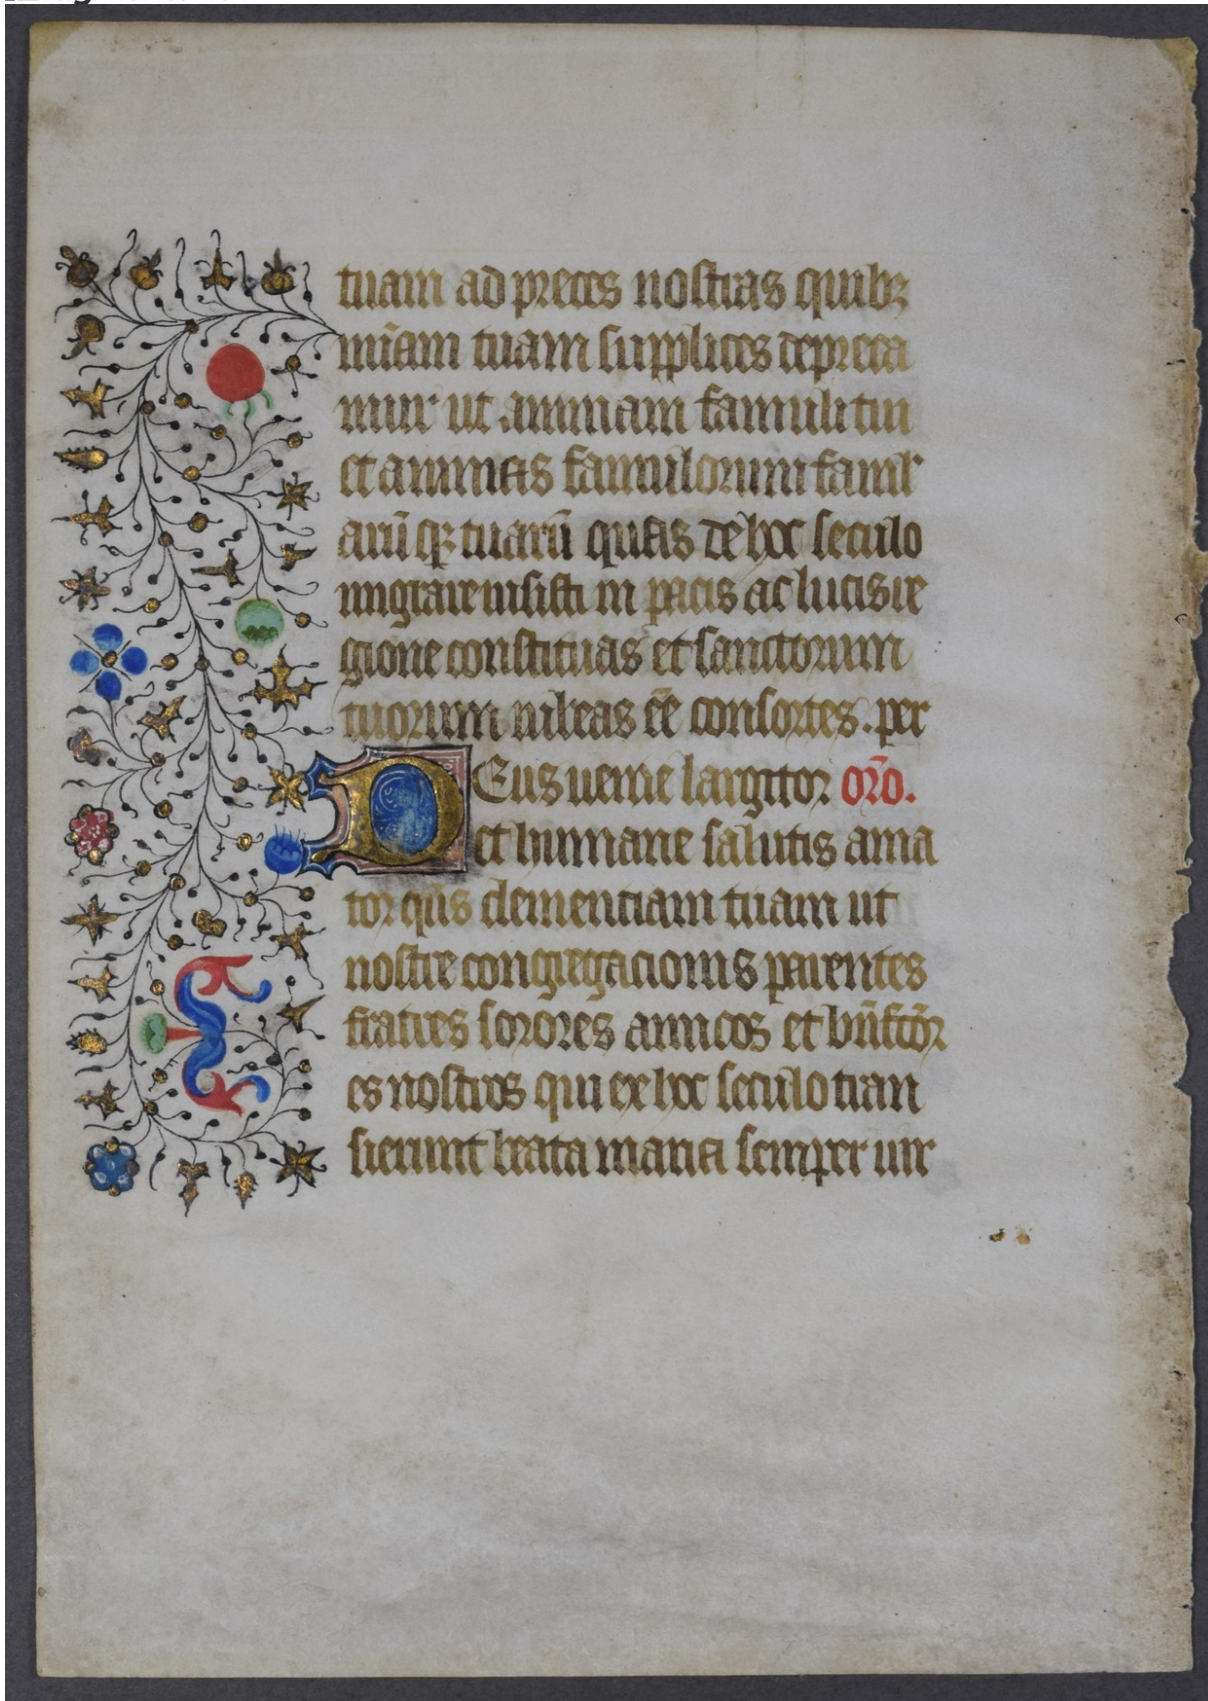 tuam ad preces nostras quibꝫ
mīam tuam supplices depreca
mur ut animam famuli tui
et animas famulorum famul
arū qꝫ tuarū quas de hoc seculo
migrare iussisti in pacis ac lucis re
gione constituas et sanctorum
tuorum iubeas eē consortes. per
Deus uenie largitor or̄o.
et humane salutis ama
tor qūs clementiam tuam ut
nostre congregacionis parentes
fratres sorores amicos et bn̄fc̄or
es nostros qui ex hoc seculo tran
sierunt beata maria semper uir